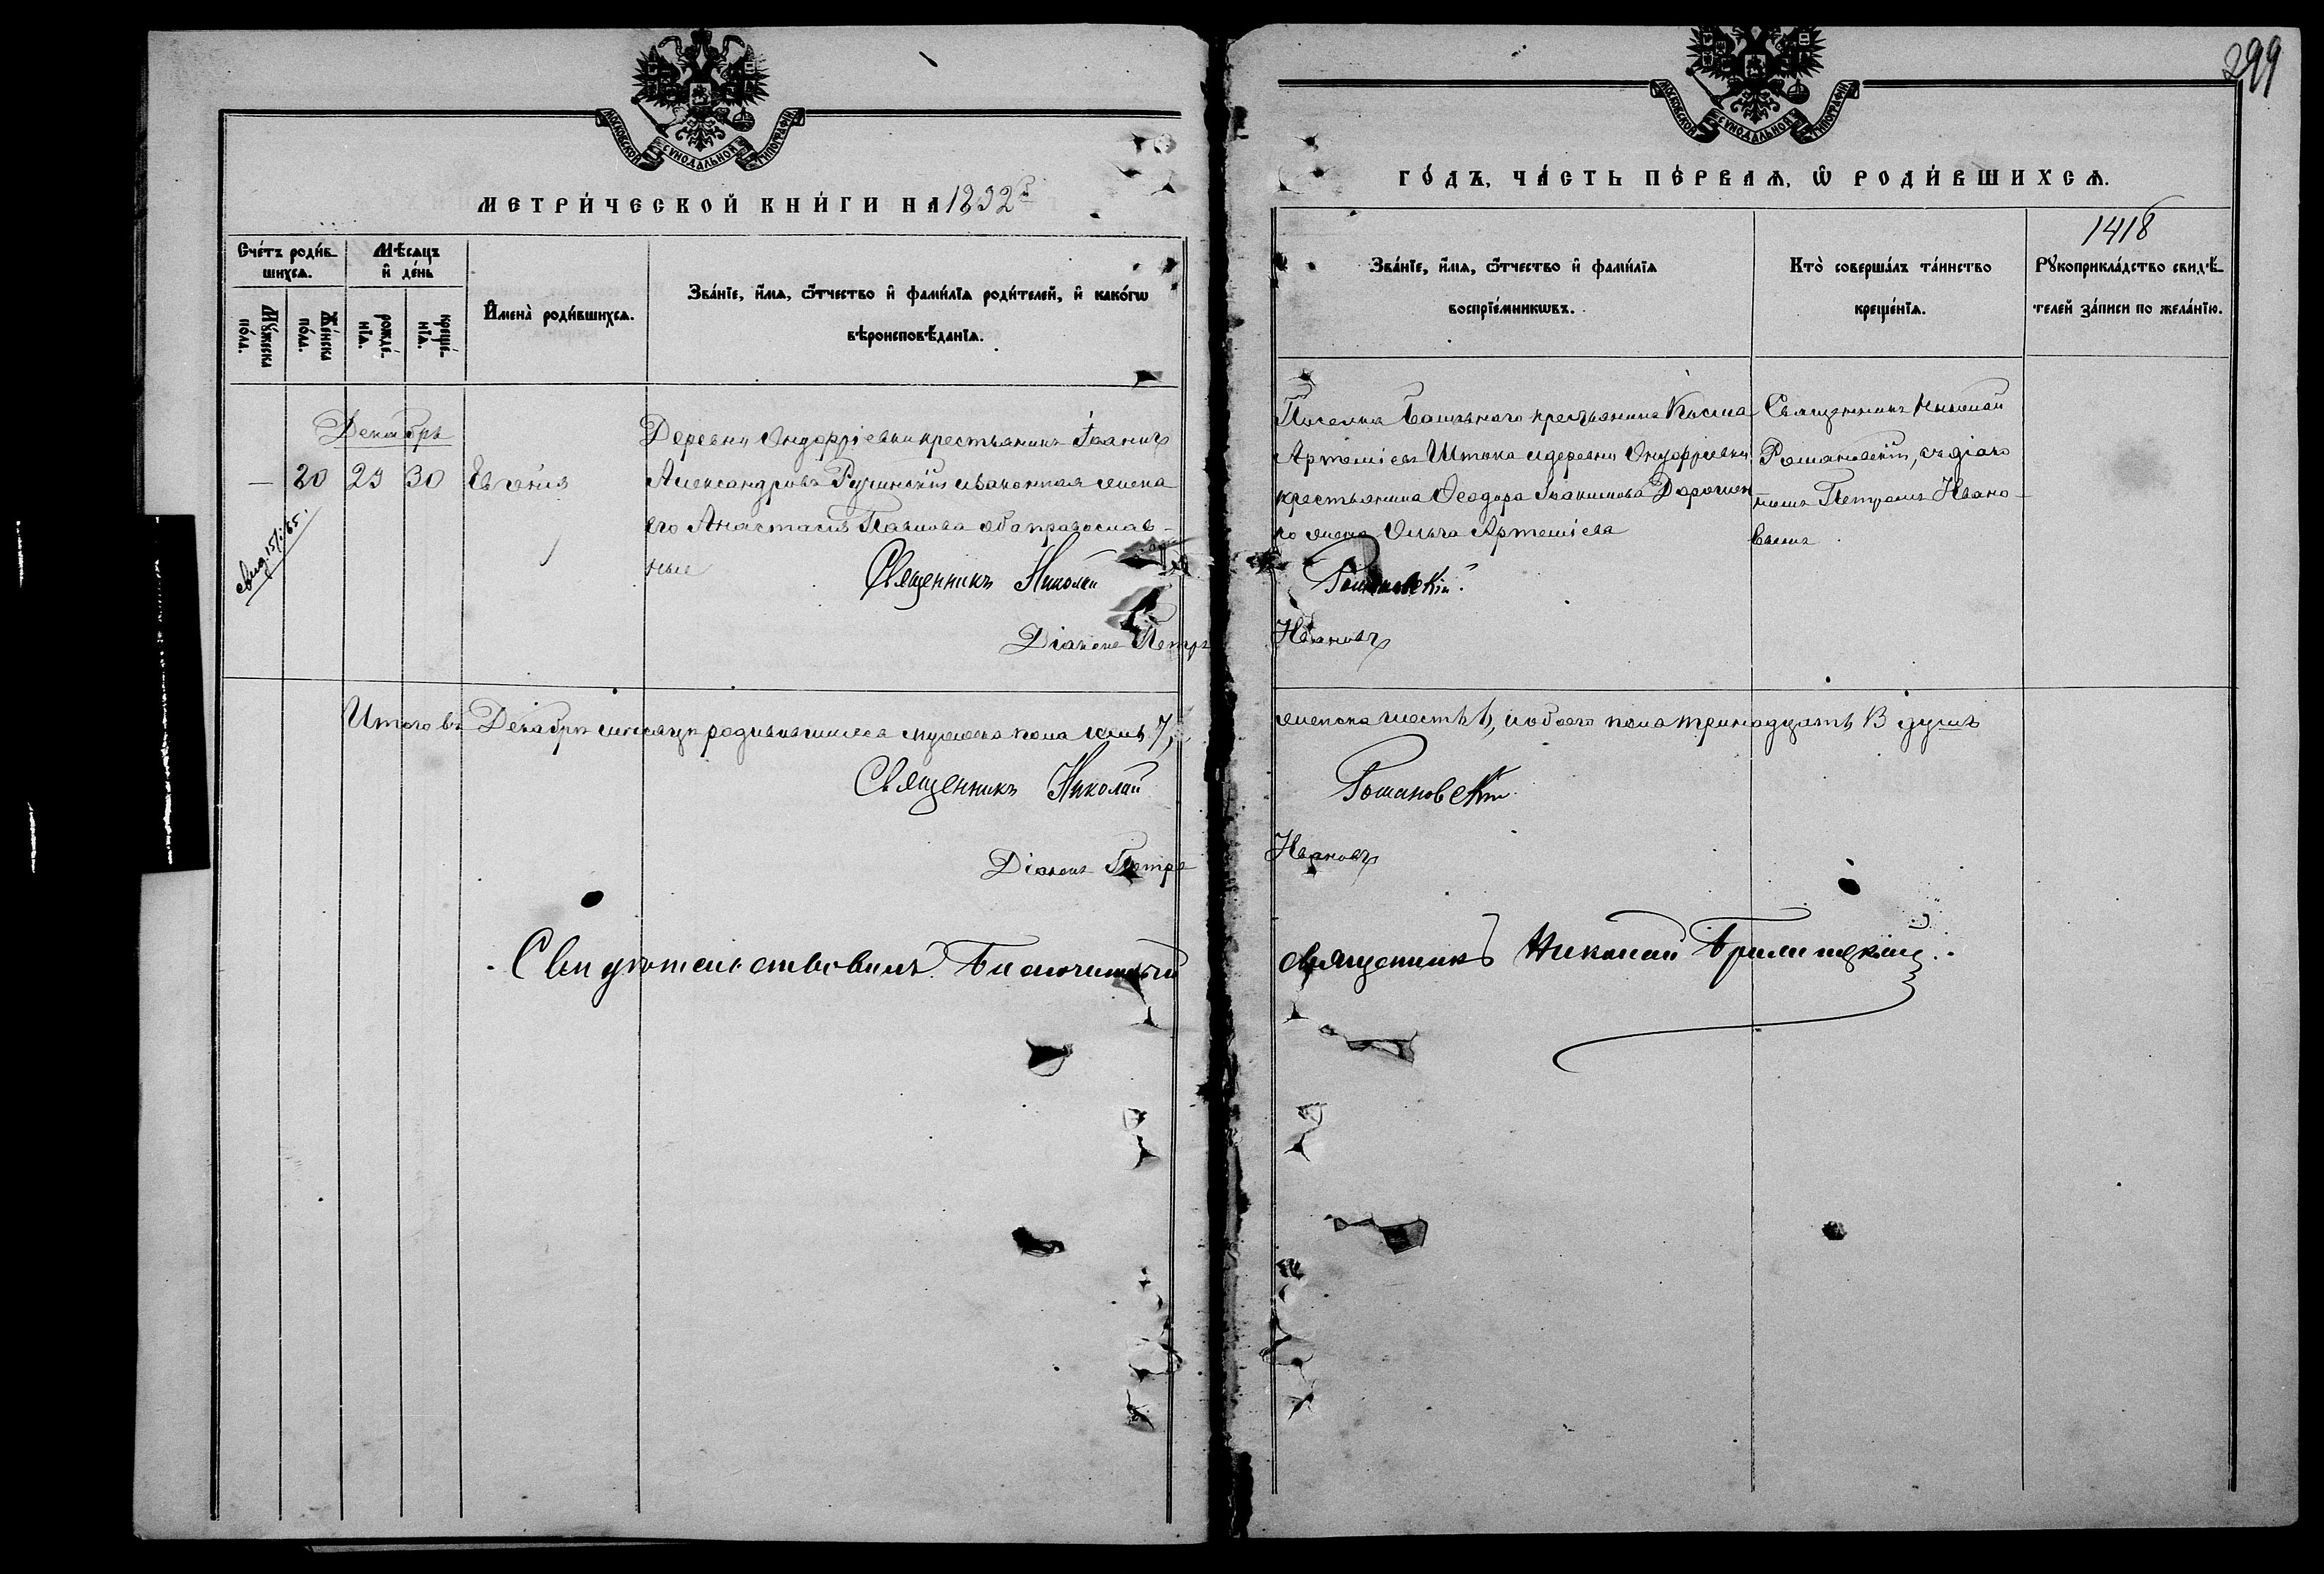 МОСКОВСКОЙ СѴНОДАЛЬНОЙ ТИПОГРАФІИ
МЕТРИ́ЧЕСКОЙ КНИ́ГИ НА 1892
Сче́тъ роди́в-
шихсѧ.
Мꙋ́жеска
по́ла.
Же́нска
по́ла.
Мѣ́сѧцъ
и҆ де́нь
рожде́-
нїѧ.
креще́-
нїѧ.
И҆мена̀ роди́вшихсѧ.
Зва́нїе, и҆́мѧ, ѻ҆́тчество и҆ фами́лїѧ роди́телей, и҆ како́гѡ
вѣроисповѣ́данїѧ.
Декабрь
— 20 29 30 Евгенія
Деревни Онуфріевки крестьянинъ Іоаннъ
Александровъ Ручинскій и законная жена
его Анастасія Павлова оба православ-
ные
Священникъ Николай
Діаконъ Петръ
Итого въ Декабрѣ мѣсяцѣ родившихся мужеска пола семь 7,
Священникъ Николай
Діаконъ Петръ
Свидѣтельствовалъ Благочинный
МОСКОВСКОЙ СѴНОДАЛЬНОЙ ТИПОГРАФІИ
299
ГО́ДЪ, ЧА́СТЬ ПЕ́РВАѦ, Ѡ҆ РОДИ́ВШИХСѦ.
1418
Зва́нїе, и҆́мѧ, ѻ҆́тчество и҆ фами́лїѧ
воспрїе́мникѡвъ.
Кто̀ соверша́лъ та́инство
креще́нїѧ.
Рꙋкоприкла́дство свидѣ́-
телей за́писи по жела́нїю.
Поселка крестьянина Косма
Артеміевъ Штока и деревни Онуфріевки
крестьянина Ѳеодора Іоакимова Дорошен
ко жена Ольга Артеміева
Священникъ Николай
Романовскій, съ діако
номъ Петромъ Ивано-
вымъ
Романовскій
Ивановъ
женска шесть 6, и обоего пола тринадцать 13 душъ
Романовскій
Ивановъ
священникъ Николай